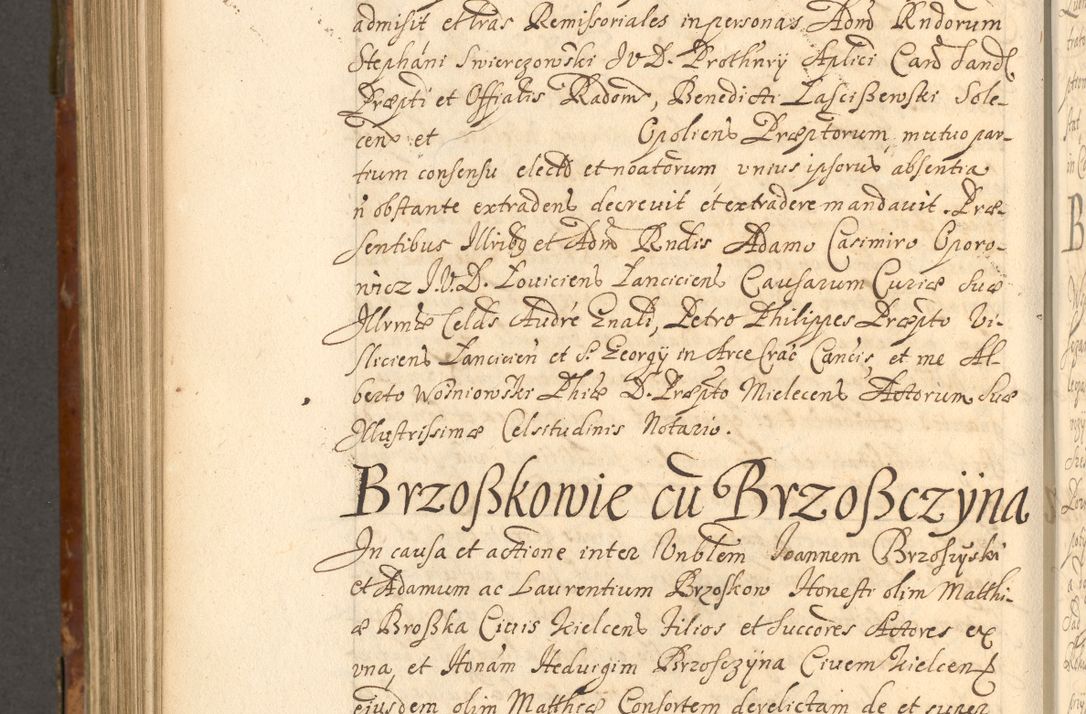 admisit et lras Remissoriales in personas Admd Rndorum
Stephani Swierczowski JVD. Prothnry Aplici Cand Sand.
Præpti et Offialis Radom, Benedicti Lascißewski Sole-
cen et Opoliens Præptorum, mutuo par-
tium consensu elect et noatorum unius ipsorū absentia
ñ obstante extradens decrevit et extradere mandavit. Præ-
sentibus Illribg et Admd Rndis Adamo Casimiro Oporo-
wicz J.V.D. Loviciens Lanciciens Causarum Curiæ Suæ
Illrmæ Celds Audre Gnali, Petro Philippes Præpto Vi-
sliciens Lancicien et S. Georgÿ in Arce Crac Cancis, et me Al-
berto Wosniowski Phiæ D. Præpto Mielecens Actorium Suæ
Illustrissimæ Celsitudinis Notario.
Brzoßkowie cū Brzoßczÿna
In causa et actione inter Vnblem Joannem Brzosrÿski
et Adamum ac Laurentium Brzoskow Honesti olim Matthi-
æ Broßka Civis Kielcens Filios et Succores Actores ex
vna, et Honam Hedvigim Brzosczÿna Civem Kielcens
eiusdem olim Matthiæ Consortem derelictam de et super